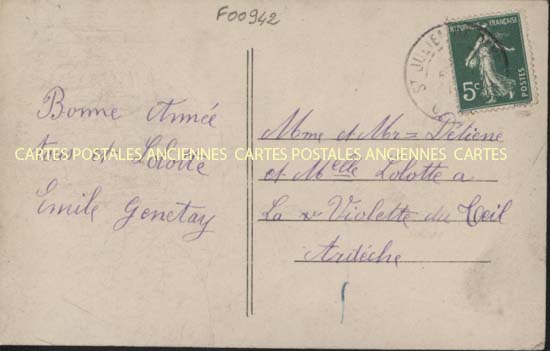 F00942
ST JULIEN
RÉPUBLIQUE FRANÇAISE
5c
POSTES
Bonne Année
Lolotte
Emile Genetay
CARTES POSTALES ANCIENNES CARTES POSTALES ANCIENNES CARTES
Mme et Mr = Déliene
et Melle Lolotte a
La Violette du Teil
Ardèche